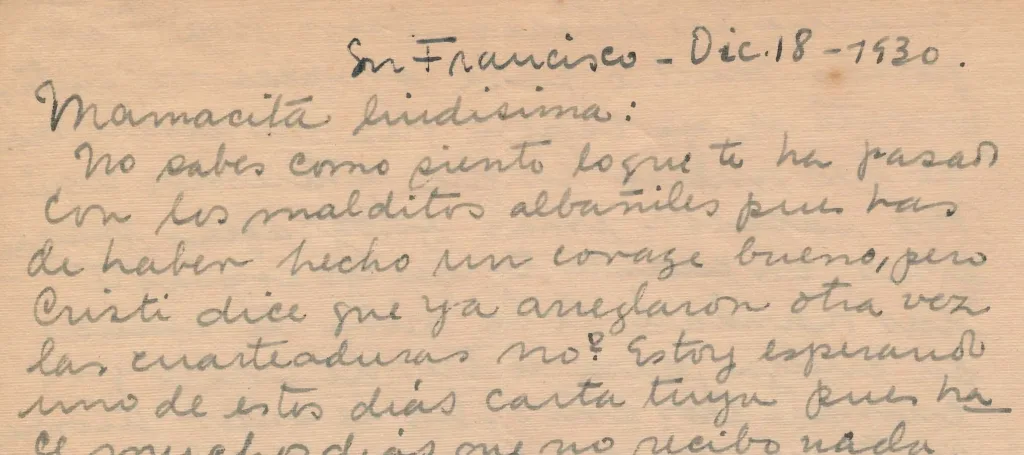 Sn Francisco - Dic. 18 - 1930.
Mamacita lindisima:
No sabes como siento lo que te ha pasado
con los malditos albañiles pues has
de haber hecho un coraje bueno, pero
Cristi dice que ya arreglaron otra vez
las cuarteaduras no? Estoy esperando
uno de estos días carta tuya pues ha
ce muchos días que no recibo nada